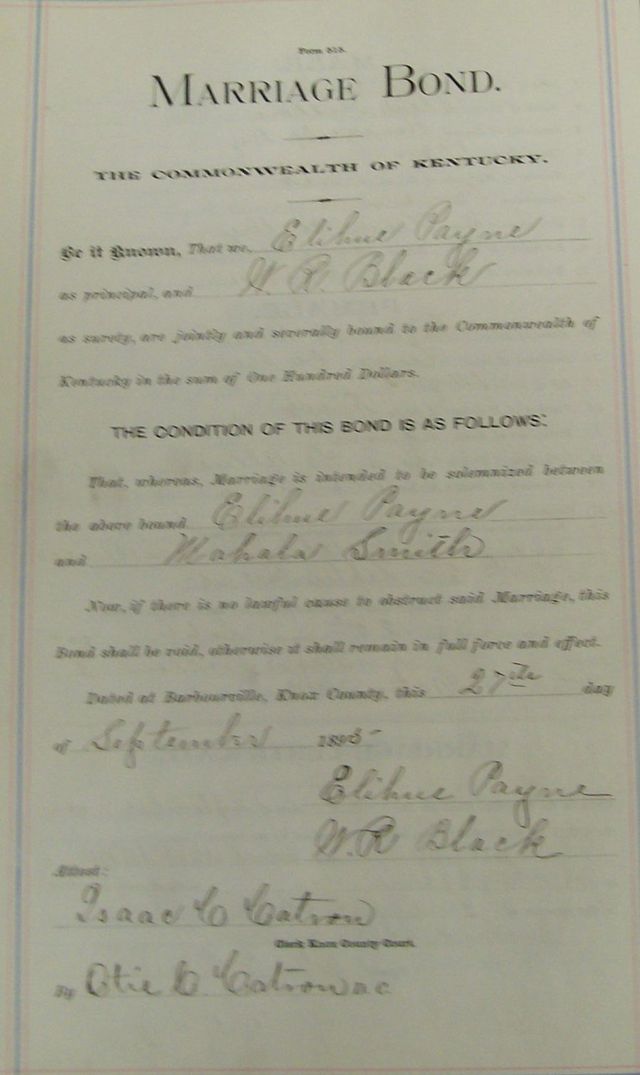 Form 818.
MARRIAGE BOND.
THE COMMONWEALTH OF KENTUCKY.
Be it Known, That we, Elihue Payne
as principal, and W. R. Black
as surety, are jointly and severally bound to the Commonwealth of
Kentucky in the sum of One Hundred Dollars.
THE CONDITION OF THIS BOND IS AS FOLLOWS:
That, whereas, Marriage is intended to be solemnized between
the above bound Elihue Payne
and Mahala Smith
Now, if there is no lawful cause to obstruct said Marriage, this
Bond shall be void, otherwise it shall remain in full force and effect.
Dated at Barbourville, Knox County, this 27th day
of September 1895
Elihue Payne
W. R Black
Attest:
Isaac C Catron
Clerk Knox County Court.
By Otie C Catron D C